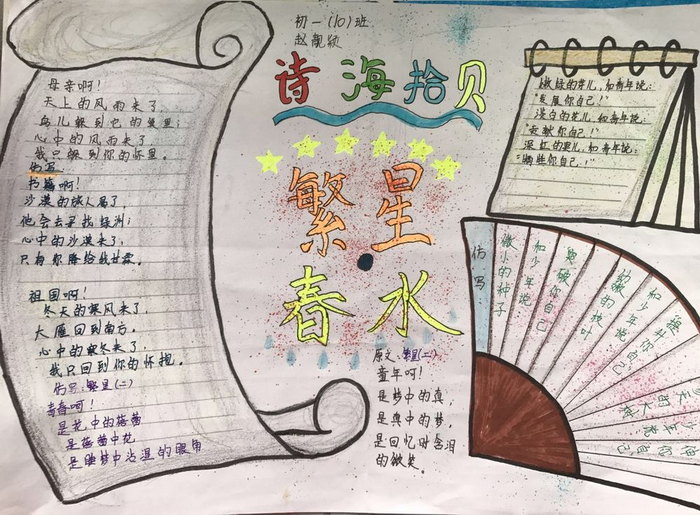 初一(10)班
赵靓颖
诗海拾贝
繁星
春水
母亲啊！
天上的风雨来了，
鸟儿躲到它的巢里；
心中的风雨来了，
我只躲到你的怀里。
仿写
书籍啊！
沙漠的旅人渴了，
他会去寻找绿洲；
心中的沙漠来了，
只有你降给我甘霖。
祖国啊！
冬天的寒风来了，
大雁回到南方。
心中的寒冬来了，
我只回到你的怀抱。
仿写:繁星(二)
青春啊！
是花中的蓓蕾
是蓓蕾中花
是睡梦中沾湿的眼角
原文:繁星(二)
童年呵！
是梦中的真，
是真中的梦，
是回忆时含泪
的微笑。
嫩绿的芽儿，和青年说：
“发展你自己！”
淡白的花儿，和青年说：
“贡献你自己！”
深红的果儿，和青年说：
“牺牲你自己！”
仿写：
微小的种子
和少年说
突破你自己
幼嫩的枝叶
和少年说：